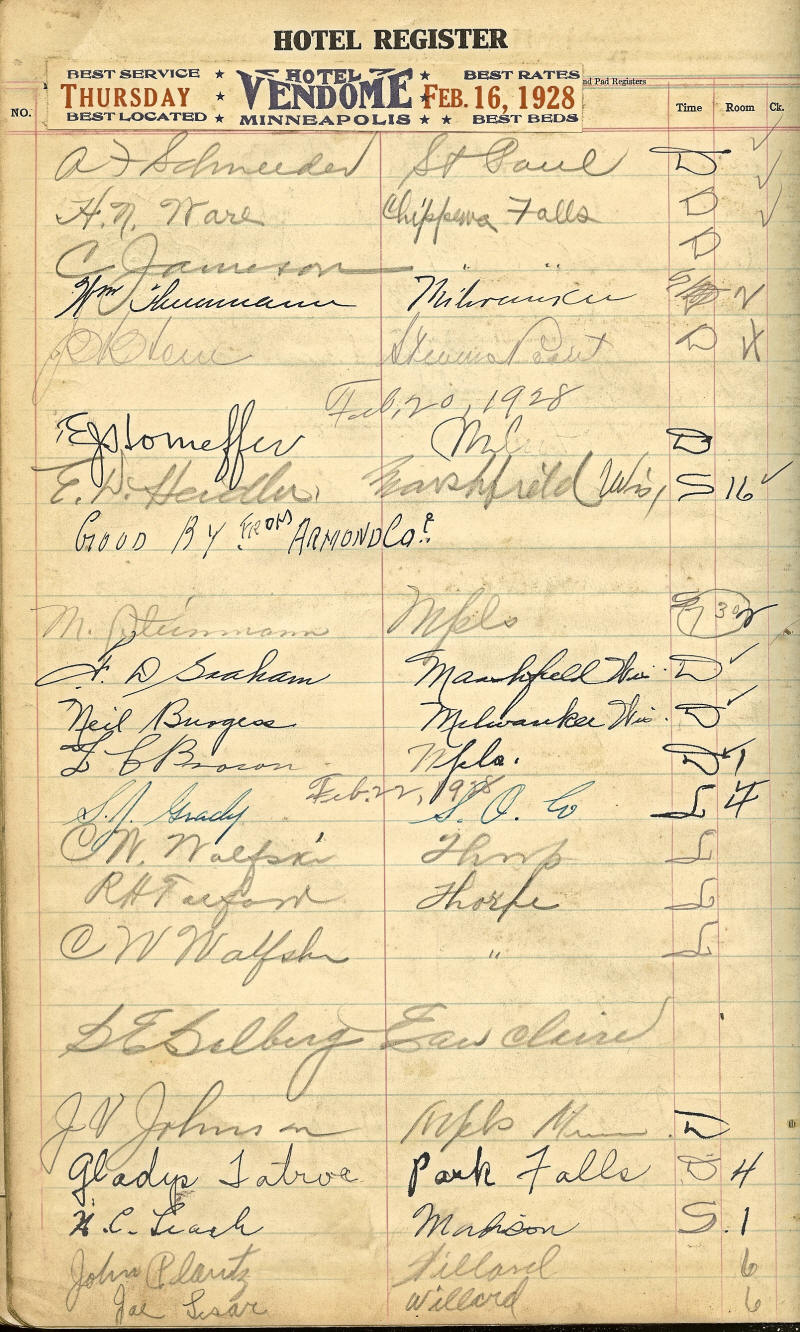 HOTEL REGISTER
BEST SERVICE ★ HOTEL ★ BEST RATES
nd Pad Registers
THURSDAY ★ VENDOME FEB. 16, 1928
BEST LOCATED ★ MINNEAPOLIS ★ ★ BEST BEDS
NO. Time Room Ck.
A F Schneeder St Paul D ✓
H. N. Ware Chippewa Falls D ✓
C Jameson " " D ✓
Wm Milwaukee 2
Stevens Point D 4
Feb. 20, 1928
Mil D
E. D. Marshfield Wis, S 16 ✓
GOOD BY FROM ARMOND Co.
M. Mpls 7 30 2
F. D Graham Marshfield Wis. D ✓
Neil Burgess Milwaukee Wis. D ✓
L C Brown Mpls. D ✓ 1
Feb. 22, 1928
S. J. Grady S. O. Co L 4
C W. Wolfski Thorp L
R H Thorpe L
C W Wolfske " L
Eau Claire
J V Johnson Mpls Minn. D
Gladys Park Falls D 4
H. C. Leach Madison S. 1
John P Willard 6
Joe Lesar Willard 6